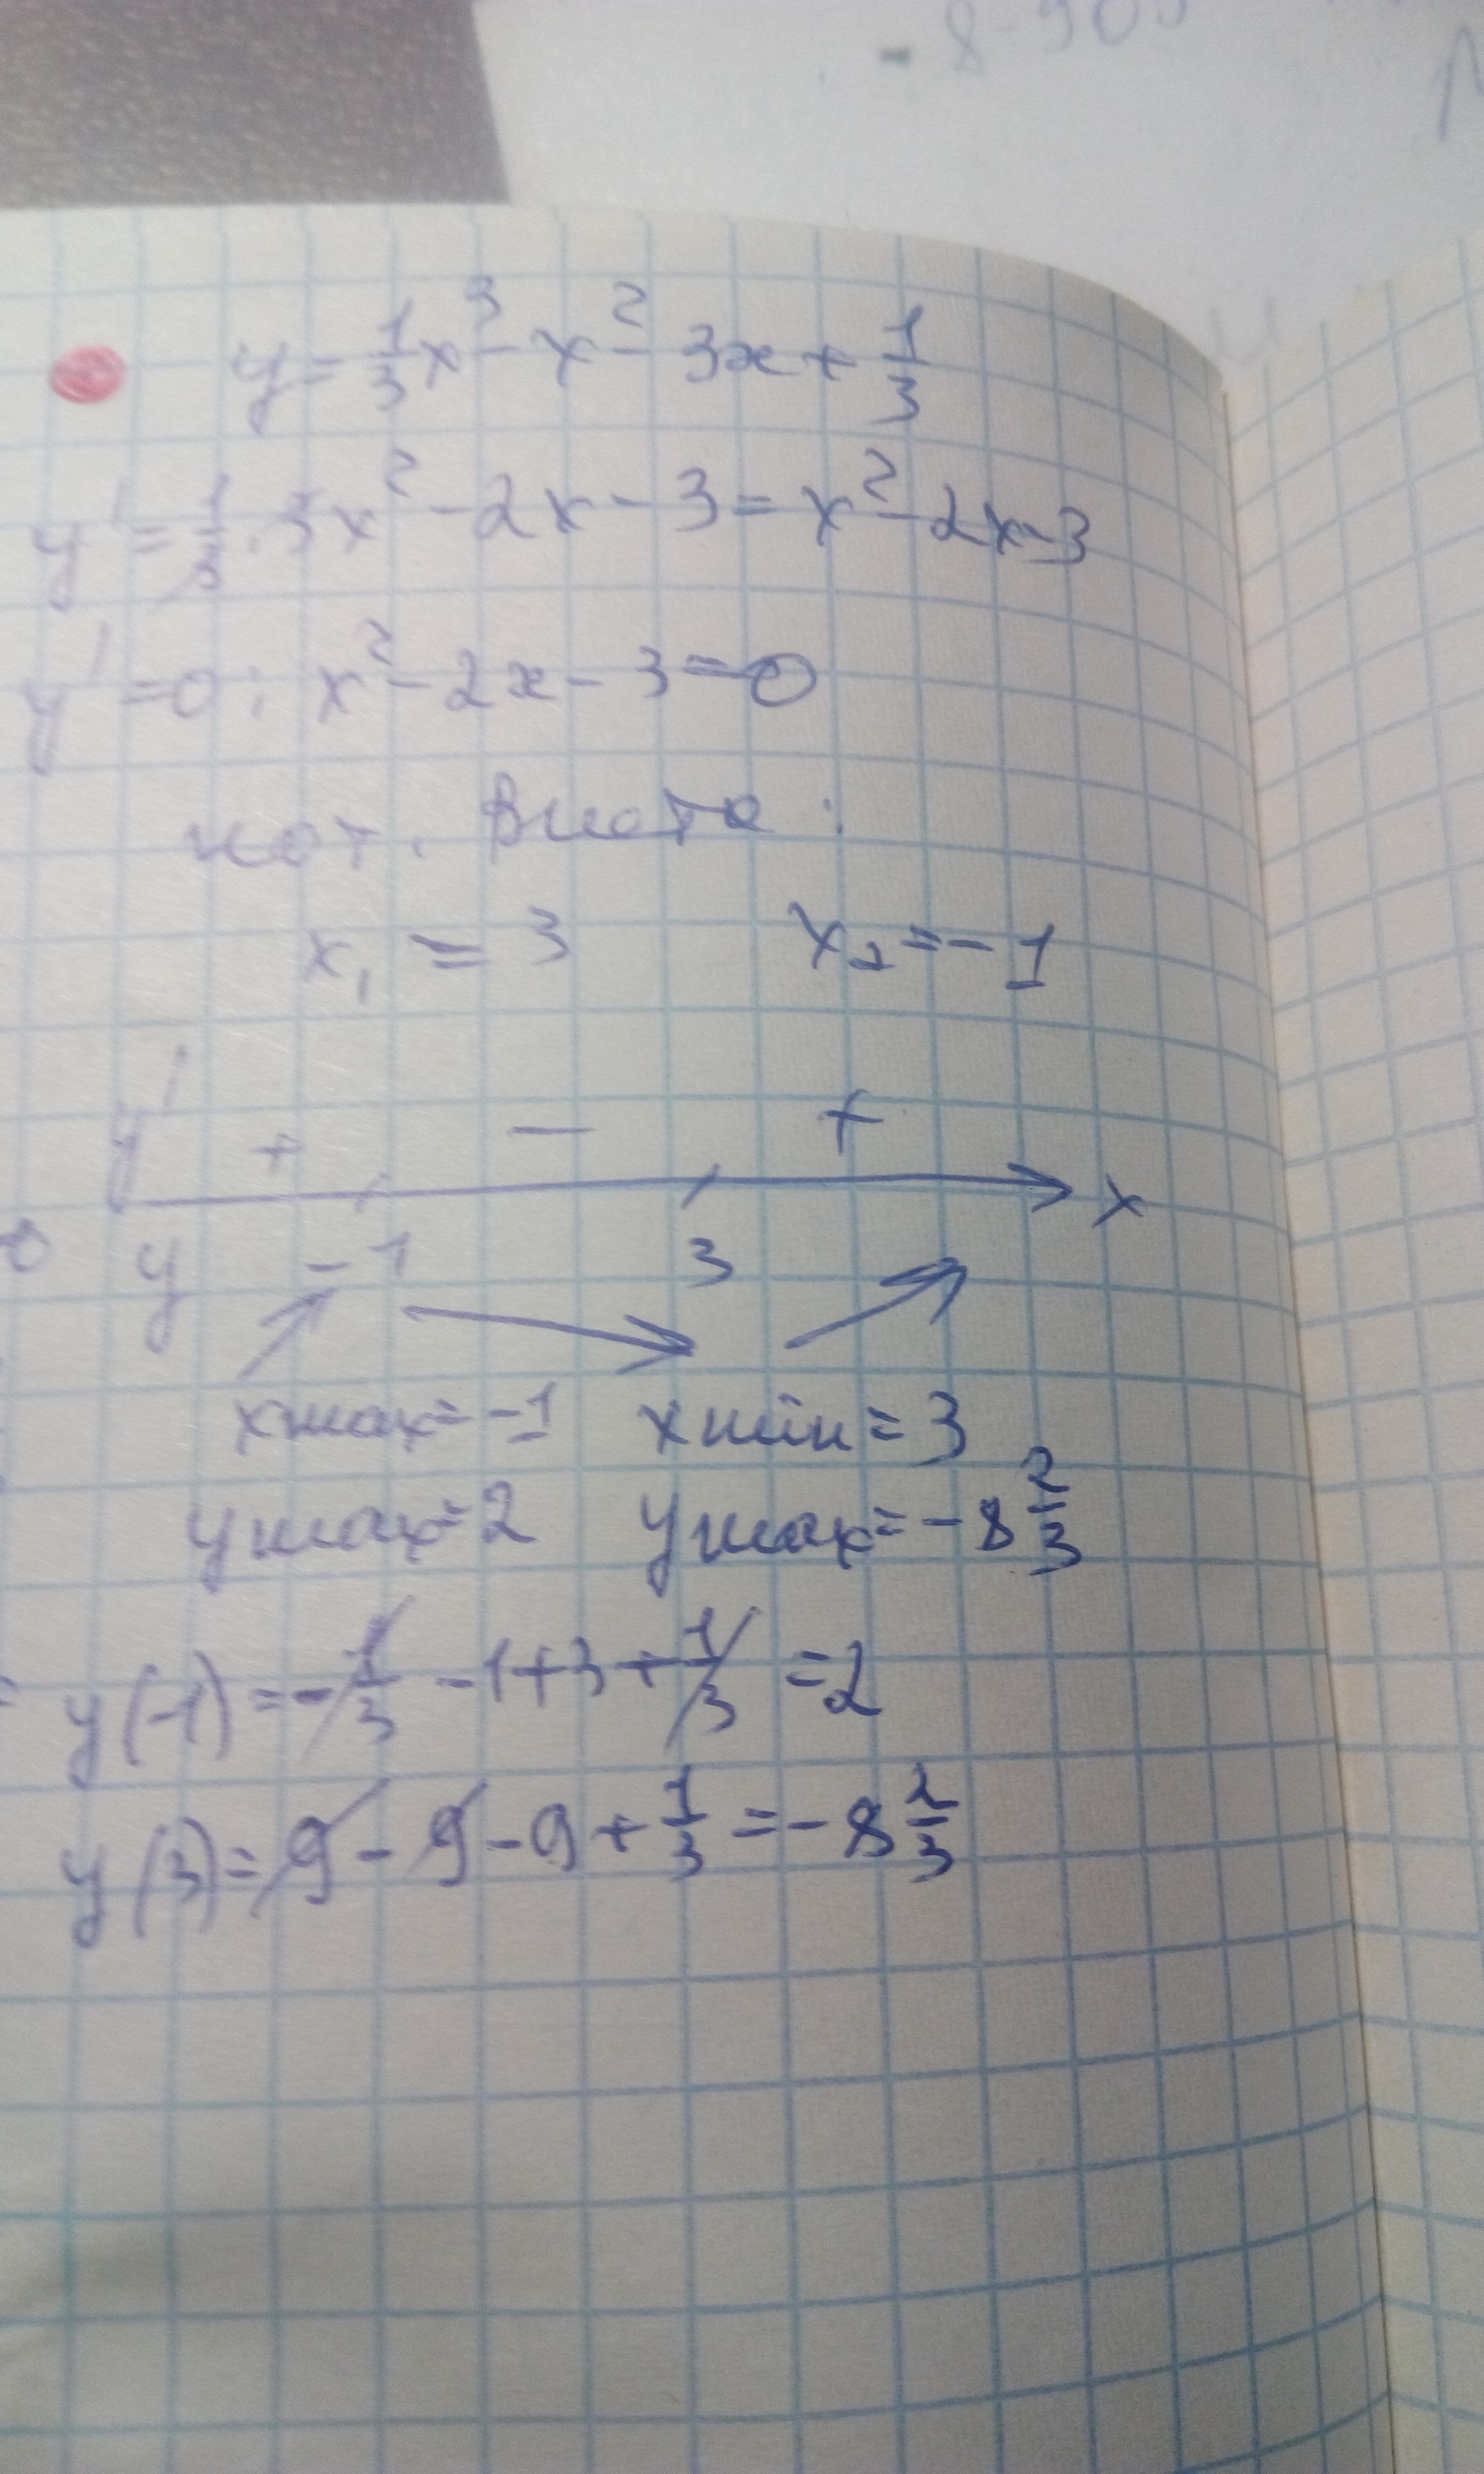 - 8-909
y = 1/3 x³ - x² - 3x + 1/3
y' = 1/3 · 3x² - 2x - 3 = x² - 2x - 3
y' = 0: x² - 2x - 3 = 0
по т. Виета:
x₁ = 3 x₂ = -1
y' + - + x
y -1 3
xmax = -1 xmin = 3
ymax = 2 ymax = -8 2/3
y(-1) = -1/3 - 1 + 3 + 1/3 = 2
y(3) = 9 - 9 - 9 + 1/3 = -8 2/3